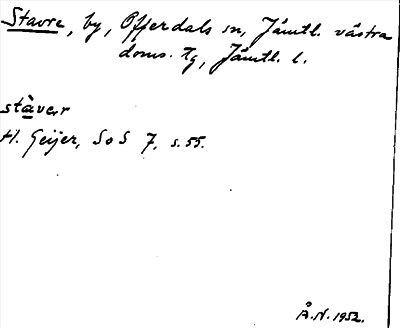 Stavre, by, Offerdals sn, Jämtl. västra
doms. tg, Jämtl. l.
stàver
H. Geijer, SoS 7, s. 55.
Å.N. 1952.